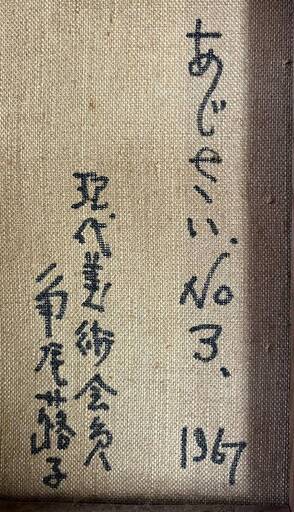 あじせい. No 3. 1967
現代美術会員
尾子